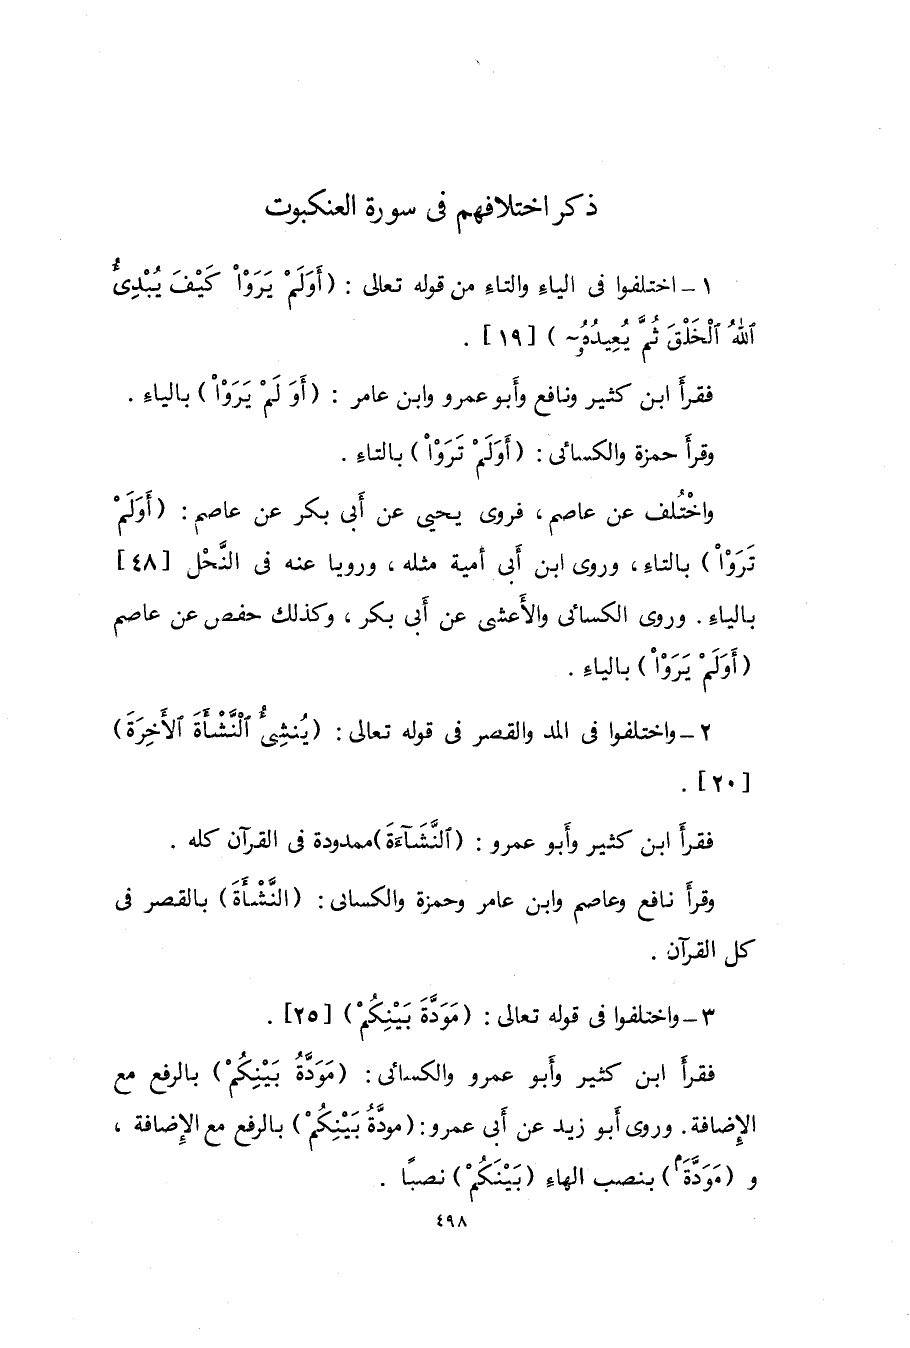 ذكر اختلافهم فى سورة العنكبوت
١ – اختلفوا فى الياء والتاء من قوله تعالى : ( أَوَلَمْ يَرَوْاْ كَيْفَ يُبْدِئُ
ٱللهُ ٱلْخَلْقَ ثُمَّ يُعِيدُهُۥٓ ) [ ١٩ ] .
فقرأ ابن كثير ونافع وأبو عمرو وابن عامر : ( أَوَ لَمْ يَرَوْاْ ) بالياء .
وقرأ حمزة والكسائى : ( أَوَلَمْ تَرَوْاْ ) بالتاء .
واخْتُلف عن عاصم ، فروى يحيى عن أبى بكر عن عاصم : ( أَوَلَمْ
تَرَوْاْ ) بالتاء ، وروى ابن أبى أمية مثله ، ورويا عنه فى النَّحْل [ ٤٨ ]
بالياء . وروى الكسائى والأعشى عن أبى بكر ، وكذلك حفص عن عاصم
( أَوَلَمْ يَرَوْاْ ) بالياء .
٢ – واختلفوا فى المد والقصر فى قوله تعالى : ( يُنشِئُ ٱلنَّشْأَةَ ٱلأَخِرَةَ )
[ ٢٠ ] .
فقرأ ابن كثير وأبو عمرو : ( ٱلنَّشَآءَةَ ) ممدودة فى القرآن كله .
وقرأ نافع وعاصم وابن عامر وحمزة والكسائى : ( النَّشْأَةَ ) بالقصر فى
كل القرآن .
٣ – واختلفوا فى قوله تعالى : ( مَوَدَّةَ بَيْنِكُمْ ) [ ٢٥ ] .
فقرأ ابن كثير وأبو عمرو والكسائى : ( مَوَدَّةُ بَيْنِكُمْ ) بالرفع مع
الإضافة . وروى أبو زيد عن أبى عمرو : ( مودَّةُ بَيْنِكُمْ ) بالرفع مع الإضافة ،
و ( مَوَدَّةَۢ ) بنصب الهاء ( بَيْنَكُمْ ) نصبًا .
٤٩٨